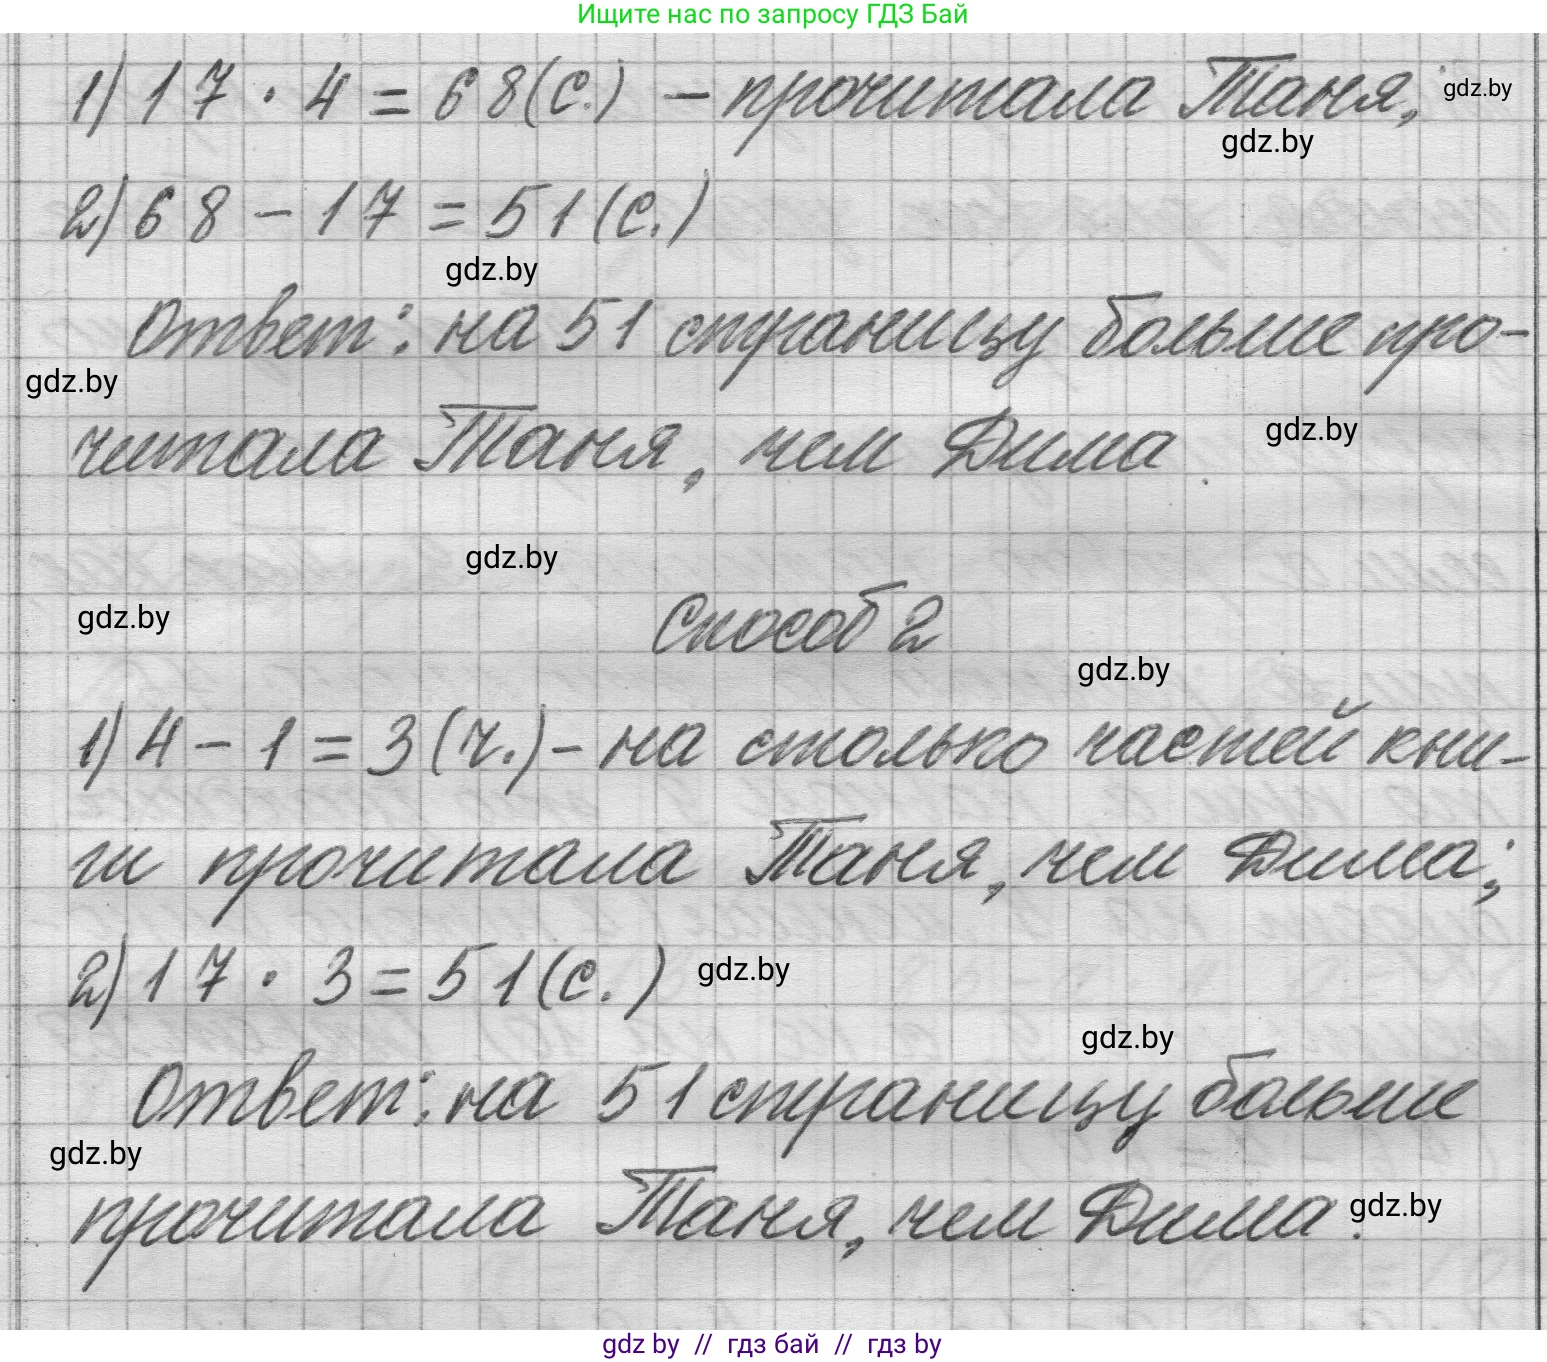 Ищите нас по запросу ГДЗ Бай
1) 17 · 4 = 68 (с.) – прочитала Таня; gdz.by
gdz.by
2) 68 – 17 = 51 (с.)
gdz.by
Ответ: на 51 страницу больше про-
gdz.by
читала Таня, чем Дима.
gdz.by
gdz.by
gdz.by
Способ 2
gdz.by
1) 4 – 1 = 3 (ч.) – на столько частей кни-
ги прочитала Таня, чем Дима;
2) 17 · 3 = 51 (с.) gdz.by
gdz.by
Ответ: на 51 страницу больше
gdz.by
прочитала Таня, чем Дима. gdz.by
gdz by // гдз бай // гдз by